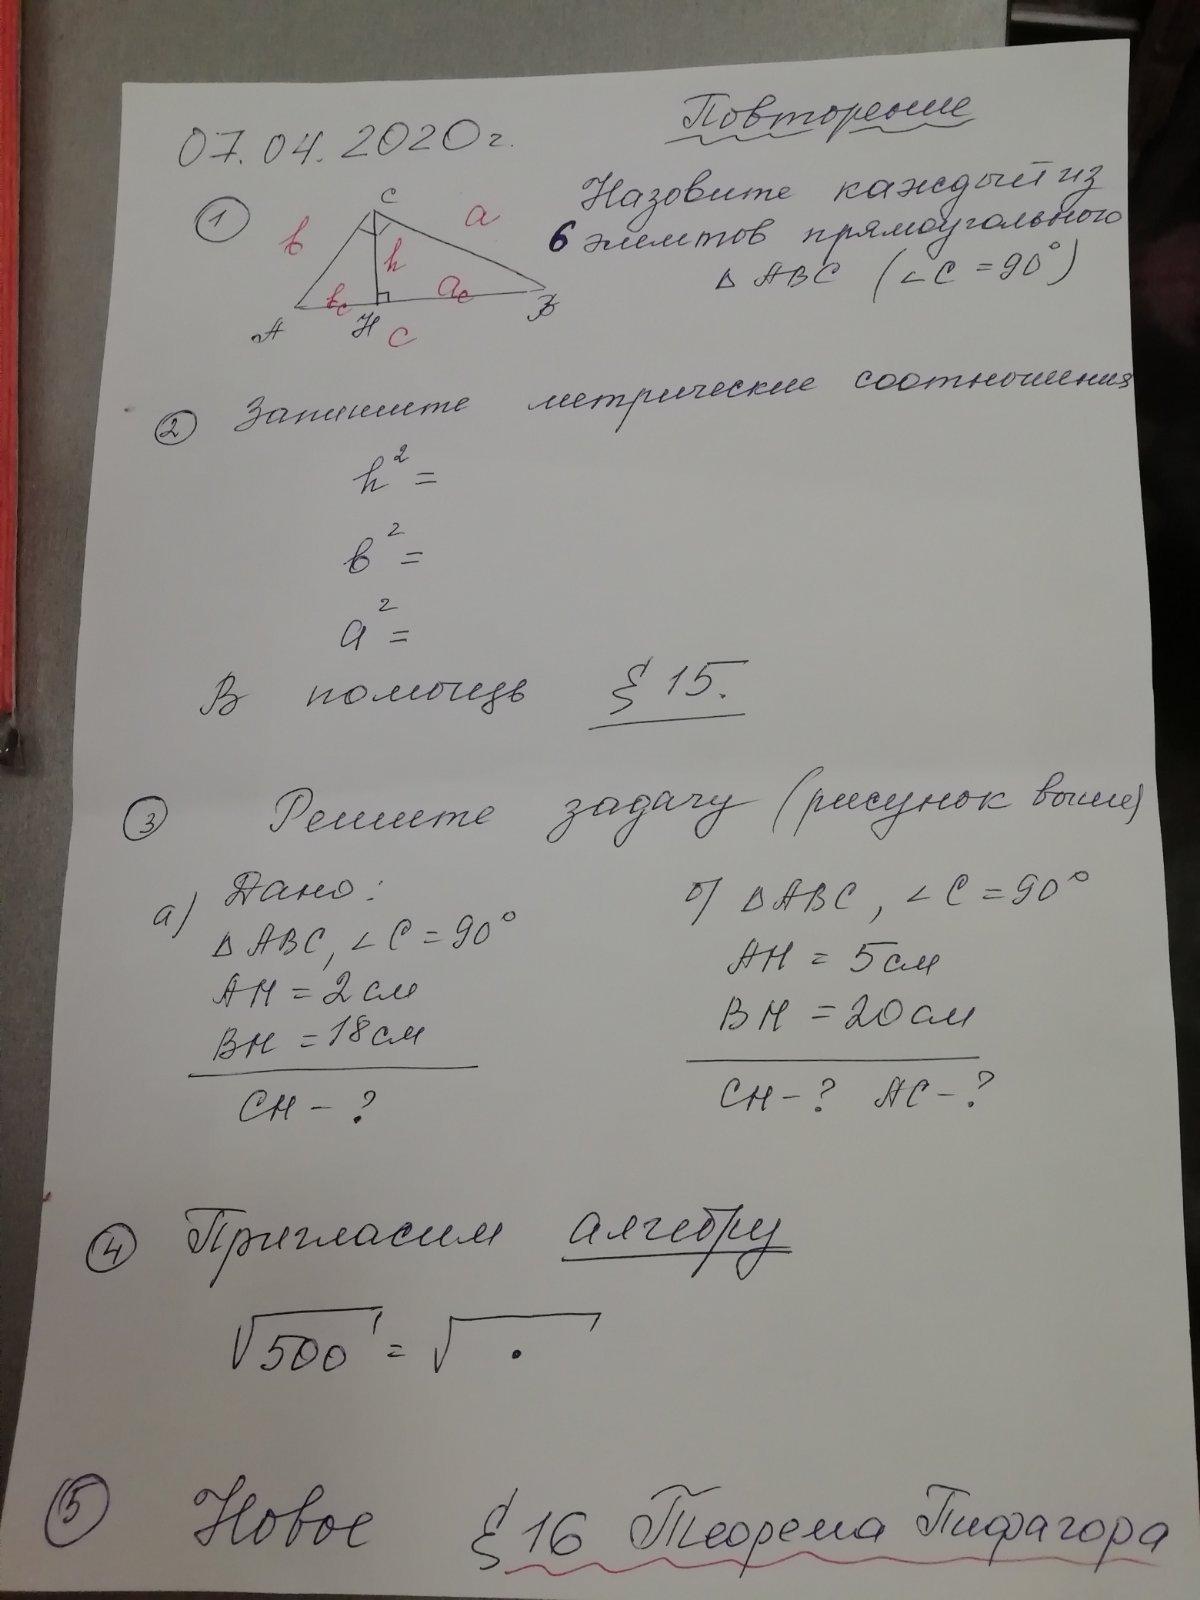 07.04.2020г.
Повторение
① C a b h bc ac A H B c
Назовите каждый из
6 элемтов прямоугольного
△ ABC (∠C = 90°)
② Запишите метрические соотношения
h² =
b² =
a² =
В помощь § 15.
③ Решите задачу (рисунок выше)
а) Дано:
△ ABC, ∠C = 90°
AH = 2 см
BH = 18 см
CH - ?
б) △ ABC, ∠C = 90°
AH = 5 см
BH = 20 см
CH - ? AC - ?
④ Пригласим алгебру
√500 = √ ·
⑤ Новое § 16 Теорема Пифагора